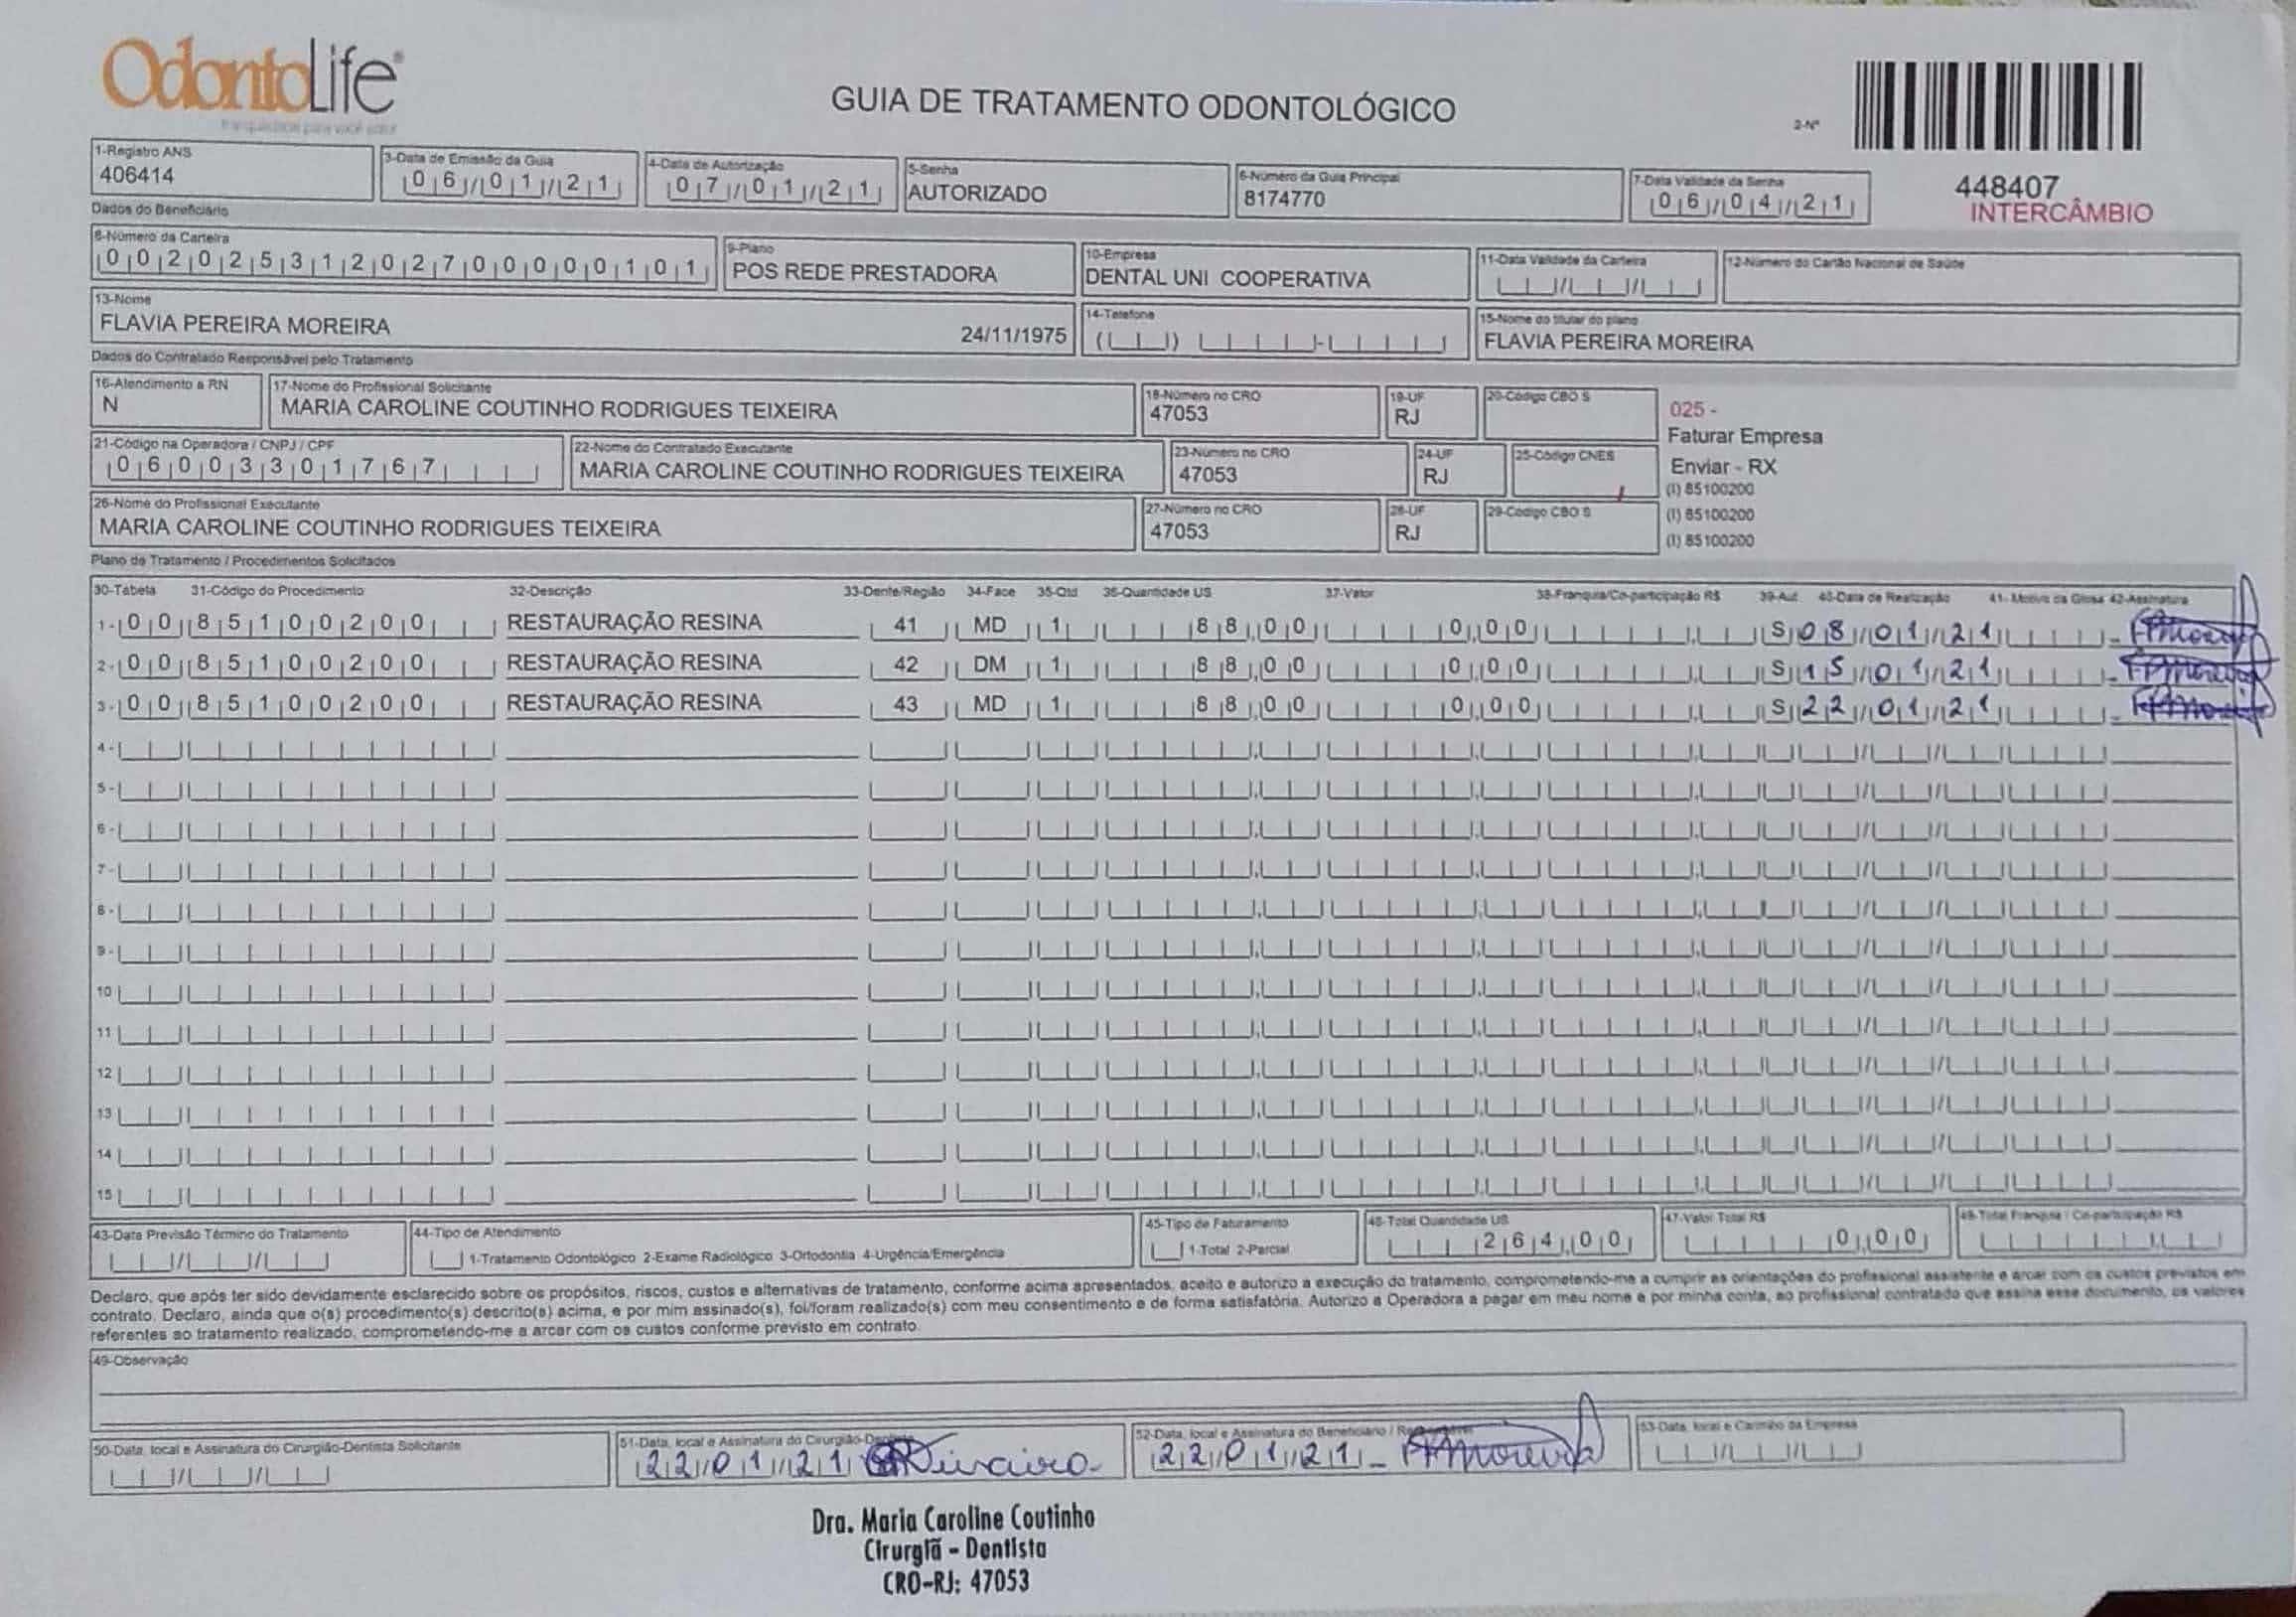 OdontoLife
GUIA DE TRATAMENTO ODONTOLÓGICO
2-Nº
448407
INTERCÂMBIO
1-Registro ANS
406414
3-Data de Emissão da Guia
06/01/21
4-Data de Autorização
07/01/21
5-Senha
AUTORIZADO
6-Número da Guia Principal
8174770
7-Data Validade da Senha
06/04/21
Dados do Beneficiário
8-Número da Carteira
00202531202700000101
9-Plano
POS REDE PRESTADORA
10-Empresa
DENTAL UNI COOPERATIVA
11-Data Validade da Carteira
12-Número do Cartão Nacional de Saúde
13-Nome
FLAVIA PEREIRA MOREIRA 24/11/1975
14-Telefone
15-Nome do titular do plano
FLAVIA PEREIRA MOREIRA
Dados do Contratado Responsável pelo Tratamento
16-Atendimento a RN
N
17-Nome do Profissional Solicitante
MARIA CAROLINE COUTINHO RODRIGUES TEIXEIRA
18-Número no CRO
47053
19-UF
RJ
20-Código CBO S
025 -
Faturar Empresa
Enviar - RX
(1) 85100200
(1) 85100200
(1) 85100200
21-Código na Operadora / CNPJ / CPF
06003301767
22-Nome do Contratado Executante
MARIA CAROLINE COUTINHO RODRIGUES TEIXEIRA
23-Número no CRO
47053
24-UF
RJ
25-Código CNES
26-Nome do Profissional Executante
MARIA CAROLINE COUTINHO RODRIGUES TEIXEIRA
27-Número no CRO
47053
28-UF
RJ
29-Código CBO S
Plano de Tratamento / Procedimentos Solicitados
30-Tabela 31-Código do Procedimento 32-Descrição 33-Dente/Região 34-Face 35-Qtd 36-Quantidade US 37-Valor 38-Franquia/Co-participação R$ 39-Aut 40-Data de Realização 41- Motivo da Glosa 42-Assinatura
1- 00 85100200 RESTAURAÇÃO RESINA 41 MD 1 88,00 0,00 S 08/01/21
2- 00 85100200 RESTAURAÇÃO RESINA 42 DM 1 88,00 0,00 S 15/01/21
3- 00 85100200 RESTAURAÇÃO RESINA 43 MD 1 88,00 0,00 S 22/01/21
4-
5-
6-
7-
8-
9-
10
11
12
13
14
15
43-Data Previsão Término do Tratamento
44-Tipo de Atendimento
1-Tratamento Odontológico 2-Exame Radiológico 3-Ortodontia 4-Urgência/Emergência
45-Tipo de Faturamento
1-Total 2-Parcial
46-Total Quantidade US
264,00
47-Valor Total R$
0,00
48-Total Franquia / Co-participação R$
Declaro, que após ter sido devidamente esclarecido sobre os propósitos, riscos, custos e alternativas de tratamento, conforme acima apresentados, aceito e autorizo a execução do tratamento, comprometendo-me a cumprir as orientações do profissional assistente e arcar com os custos previstos em
contrato. Declaro, ainda que o(s) procedimento(s) descrito(s) acima, e por mim assinado(s), foi/foram realizado(s) com meu consentimento e de forma satisfatória. Autorizo a Operadora a pagar em meu nome e por minha conta, ao profissional contratado que assina esse documento, os valores
referentes ao tratamento realizado, comprometendo-me a arcar com os custos conforme previsto em contrato.
49-Observação
50-Data, local e Assinatura do Cirurgião-Dentista Solicitante
51-Data, local e Assinatura do Cirurgião-Dentista
22/01/21
52-Data, local e Assinatura do Beneficiário /
22/01/21
53-Data, local e Carimbo da Empresa
Dra. Maria Caroline Coutinho
Cirurgiã - Dentista
CRO-RJ: 47053